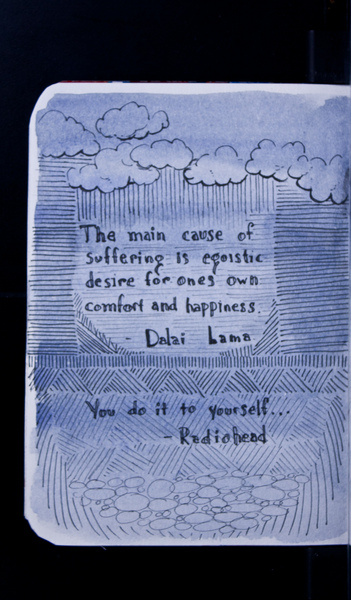 The main cause of
Suffering is egoistic
desire for ones own
comfort and happiness.
- Dalai Lama
You do it to yourself...
- Radiohead